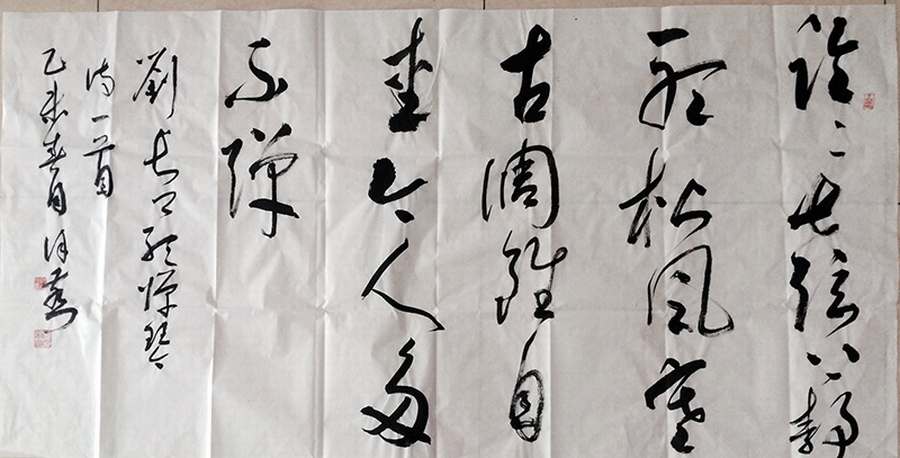 泠〻七弦上静
听松风寒
古调雖自
爱今人多
不弹
劉长卿听弹琴
诗一首
乙未春月